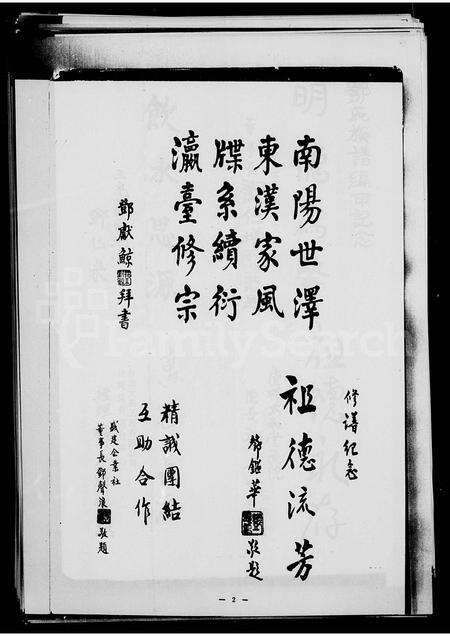 南陽世澤
東漢家風
牒系續衍
瀛臺修宗
鄧獻鯨
拜書
修譜紀念
祖德流芳
鄧鎔華
敬題
精誠團結
互助合作
盛建企業社
董事長鄧聲浪
敬題
— 2 —
FamilySearch